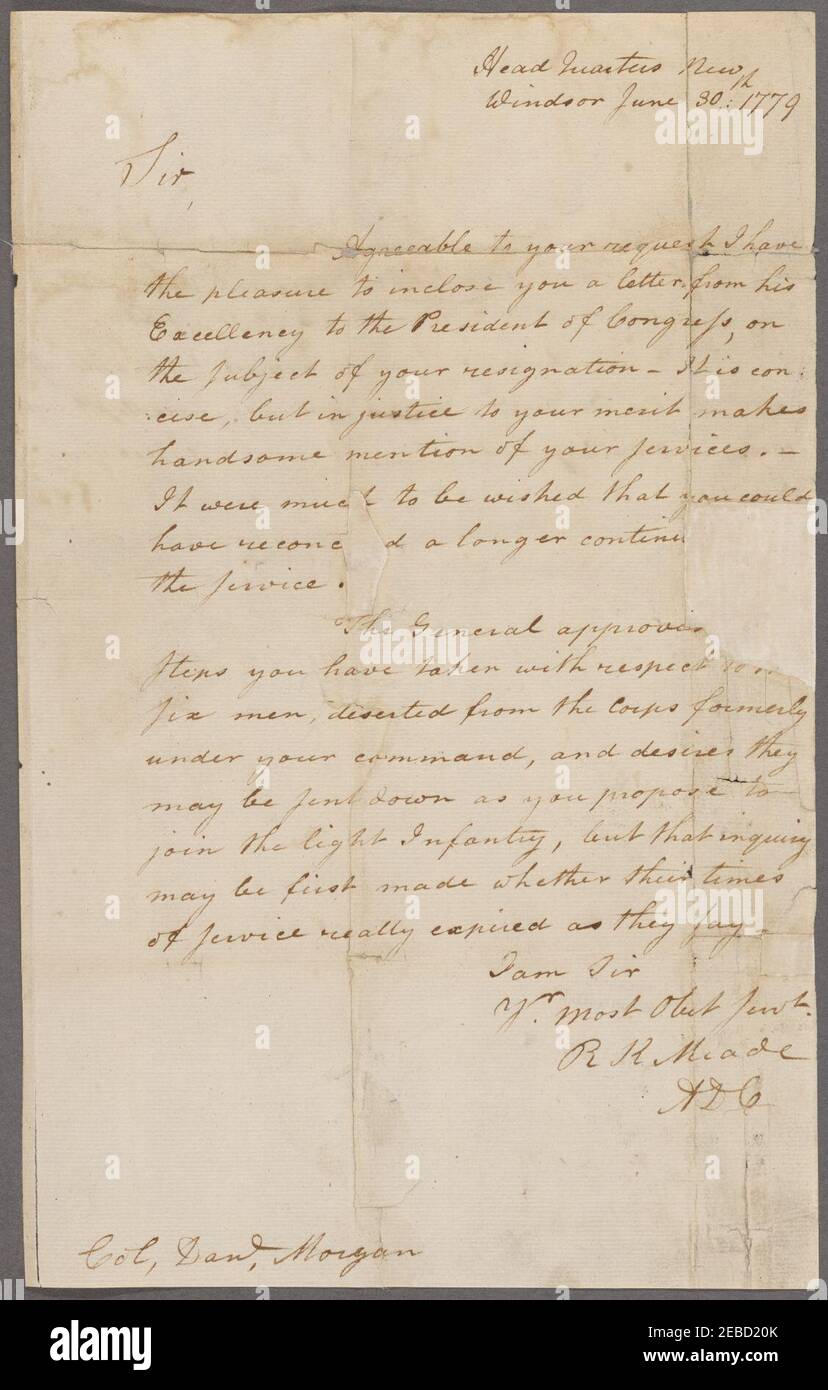 Head Quarters New
Windsor June 30:th 1779
Sir,
Agreeable to your request I have
the pleasure to inclose you a letter from his
Excellency to the President of Congreſs, on
the subject of your resignation – It is con:
:cise, but in justice to your merit makes
handsome mention of your services. –
It were much to be wished that you could
have reconc d a longer continu
the service.
The General approves
steps you have taken with respect to
six men, deserted from the Corps formerly
under your command, and desires they
may be sent down as you propose to
join the light Infantry, but that inquiry
may be first made whether their times
of service really expired as they say.
I am Sir
Yr. most Obet Servt.
R K Meade
ADC
Col, Dand, Morgan
alamy
Image ID: 2EBD20K
www.alamy.com